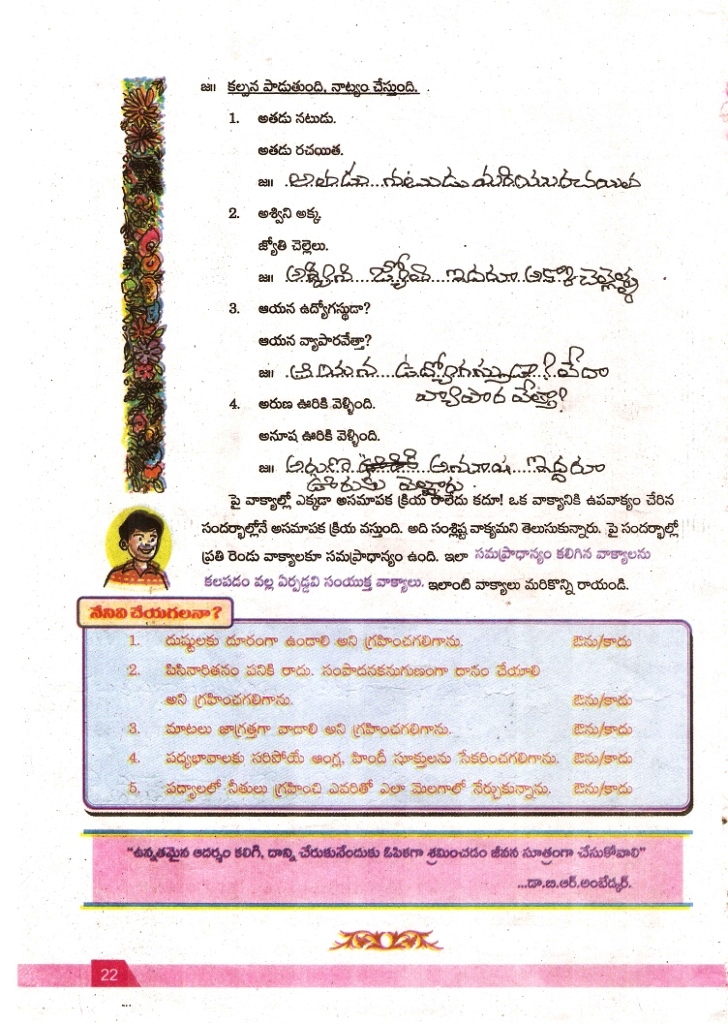 జ॥ కల్పన పాడుతుంది, నాట్యం చేస్తుంది.
1. అతడు నటుడు.
అతడు రచయిత.
జ॥ .అతడు....నటుడు మరియు రచయిత
2. అశ్విని అక్క
జ్యోతి చెల్లెలు.
జ॥ .అశ్విని....జ్యోతి....ఇద్దరూ అక్కా చెల్లెళ్ళు
3. ఆయన ఉద్యోగస్థుడా?
ఆయన వ్యాపారవేత్తా?
జ॥ .ఆయన....ఉద్యోగస్తుడా?లేదా
వ్యాపార వేత్తా?
4. అరుణ ఊరికి వెళ్ళింది.
అనూష ఊరికి వెళ్ళింది.
జ॥ .అరుణ....అనూష....ఇద్దరూ
ఊరుకు వెల్లారు.
పై వాక్యాల్లో ఎక్కడా అసమాపక క్రియ రాలేదు కదూ! ఒక వాక్యానికి ఉపవాక్యం చేరిన
సందర్భాల్లోనే అసమాపక క్రియ వస్తుంది. అది సంశ్లిష్ట వాక్యమని తెలుసుకున్నారు. పై సందర్భాల్లో
ప్రతి రెండు వాక్యాలకూ సమప్రాధాన్యం ఉంది. ఇలా సమప్రాధాన్యం కలిగిన వాక్యాలను
కలపడం వల్ల ఏర్పడ్డవి సంయుక్త వాక్యాలు. ఇలాంటి వాక్యాలు మరికొన్ని రాయండి.
నేనివి చేయగలనా?
1. దుష్టులకు దూరంగా ఉండాలి అని గ్రహించగలిగాను. ఔను/కాదు
2. పిసినారితనం పనికి రాదు. సంపాదనకనుగుణంగా దానం చేయాలి
అని గ్రహించగలిగాను. ఔను/కాదు
3. మాటలు జాగ్రత్తగా వాడాలి అని గ్రహించగలిగాను. ఔను/కాదు
4. పద్యభావాలకు సరిపోయే ఆంగ్ల, హిందీ సూక్తులను సేకరించగలిగాను. ఔను/కాదు
5. పద్యాలలో నీతులు గ్రహించి ఎవరితో ఎలా మెలగాలో నేర్చుకున్నాను. ఔను/కాదు
"ఉన్నతమైన ఆదర్శం కలిగి, దాన్ని చేరుకునేందుకు ఓపికగా శ్రమించడం జీవన సూత్రంగా చేసుకోవాలి"
...డా.బి.ఆర్.అంబేద్కర్.
22